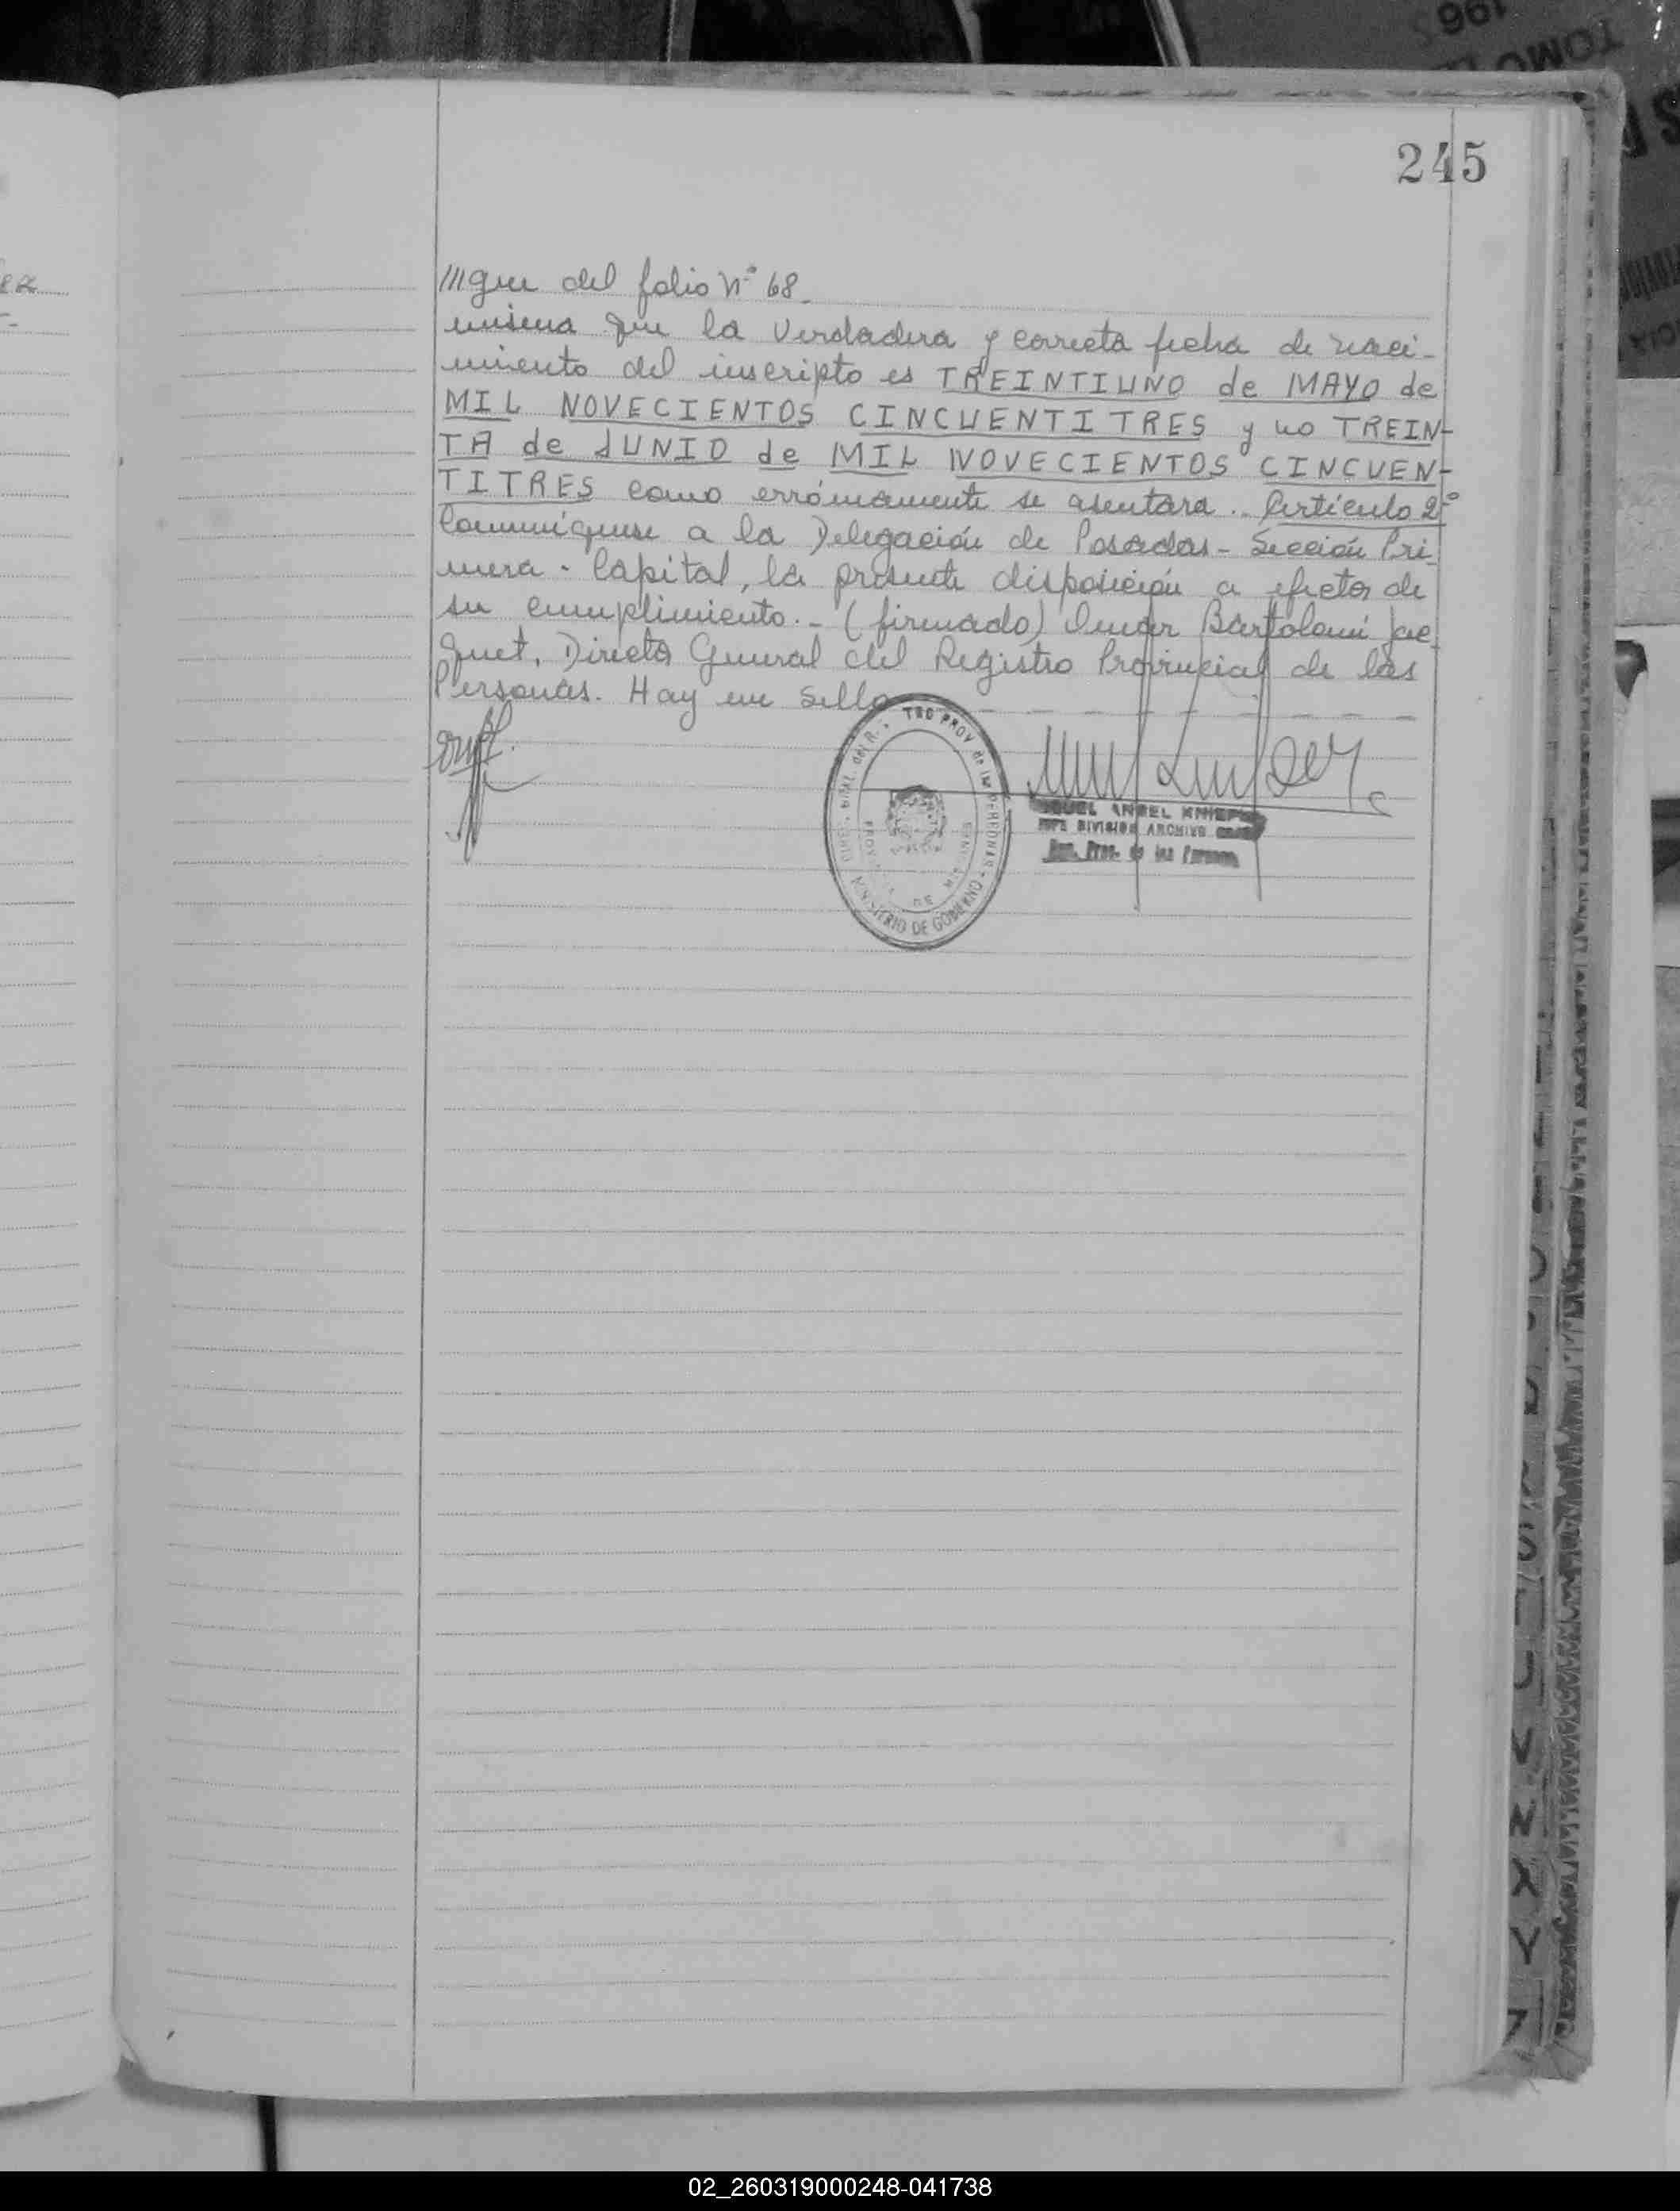 196
TOMO
245
///gue del folio Nº 68.
misma que la verdadera y correcta fecha de naci-
miento del inscripto es TREINTIUNO de MAYO de
MIL NOVECIENTOS CINCUENTITRES y no TREIN-
TA de JUNIO de MIL NOVECIENTOS CINCUEN-
TITRES como erróneamente se asentara.. Artículo 2º
Comuníquese a la Delegación de Posadas - Sección Pri
mera - Capital, la presente disposición a efectos de
su cumplimiento.- (firmado) Omar Bartolomé Jac
quet, Director General del Registro Provincial de las
Personas. Hay un sello
PROV de las PERSONAS
MINISTERIO DE GOBIERNO
MIGUEL ANGEL
JEFE DIVISION ARCHIVO
Prov. de las Personas
V
X
Y
Z
02_260319000248-041738